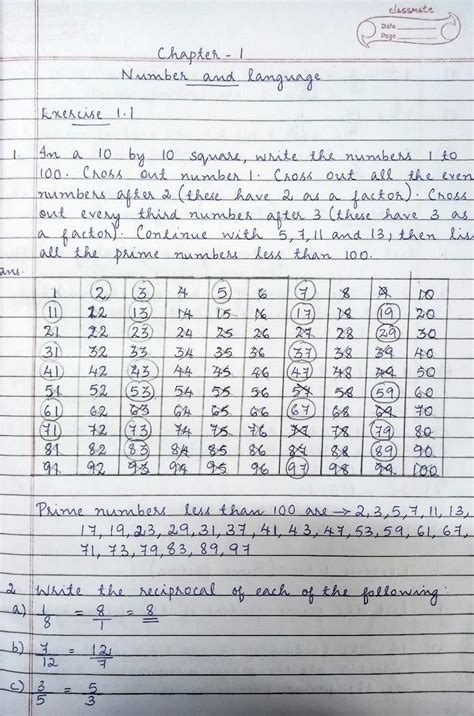 classmate
Date
Page
Chapter - 1
Number and language
Exercise 1.1
1. In a 10 by 10 square, write the numbers 1 to
100. Cross out number 1. Cross out all the even
numbers after 2 (these have 2 as a factor). Cross
out every third number after 3 (these have 3 as
a factor). Continue with 5, 7, 11 and 13, then lis
all the prime numbers less than 100.
ans.
1 2 3 4 5 6 7 8 9 10
11 12 13 14 15 16 17 18 19 20
21 22 23 24 25 26 27 28 29 30
31 32 33 34 35 36 37 38 39 40
41 42 43 44 45 46 47 48 49 50
51 52 53 54 55 56 57 58 59 60
61 62 63 64 65 66 67 68 69 70
71 72 73 74 75 76 77 78 79 80
81 82 83 84 85 86 87 88 89 90
91 92 93 94 95 96 97 98 99 100
Prime numbers less than 100 are → 2, 3, 5, 7, 11, 13,
17, 19, 23, 29, 31, 37, 41, 43, 47, 53, 59, 61, 67,
71, 73, 79, 83, 89, 97
2 Write the reciprocal of each of the following:
a) 1/8 = 8/1 = 8
b) 7/12 = 12/7
c) 3/5 = 5/3